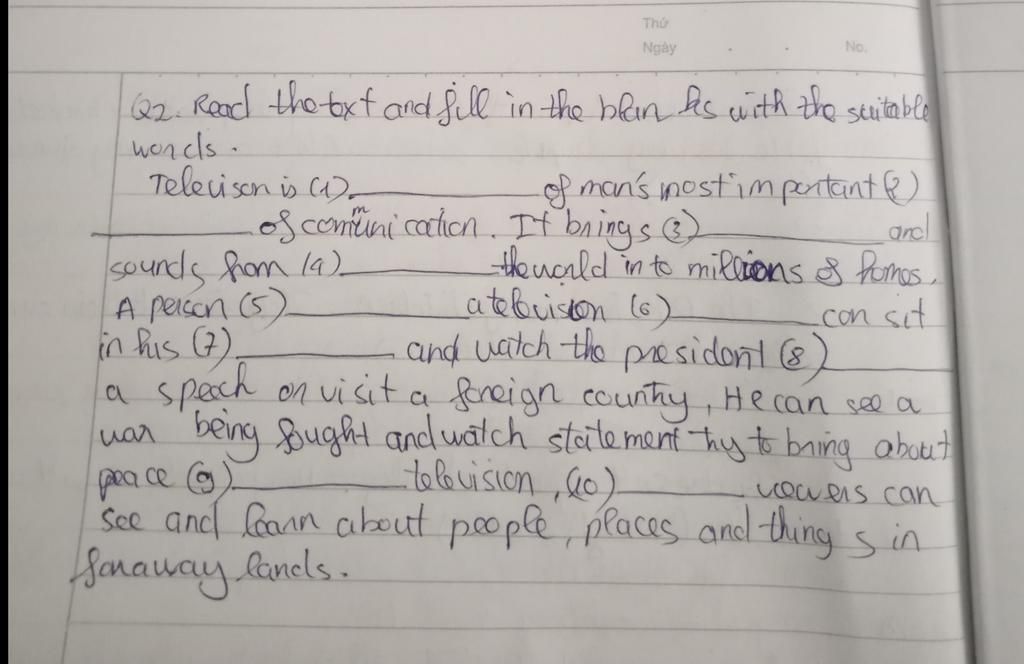 Thứ
Ngày . . No.
Q2. Read the text and fill in the blan ks with the suitable
words.
Televison is (1) ____________ of man's most important (2)
____________ of communi cation. It brings (3) ____________ and
sounds from (4) ____________ the world in to millions of homes.
A person (5) ____________ a television (6) ____________ can sit
in his (7) ____________ and watch the president (8) ____________
a speech or visit a foreign country, He can see a
war being fought and watch statement try to bring about
peace (9) ____________ television, (10) ____________ viewers can
see and learn about people, places and thing s in
faraway lands.